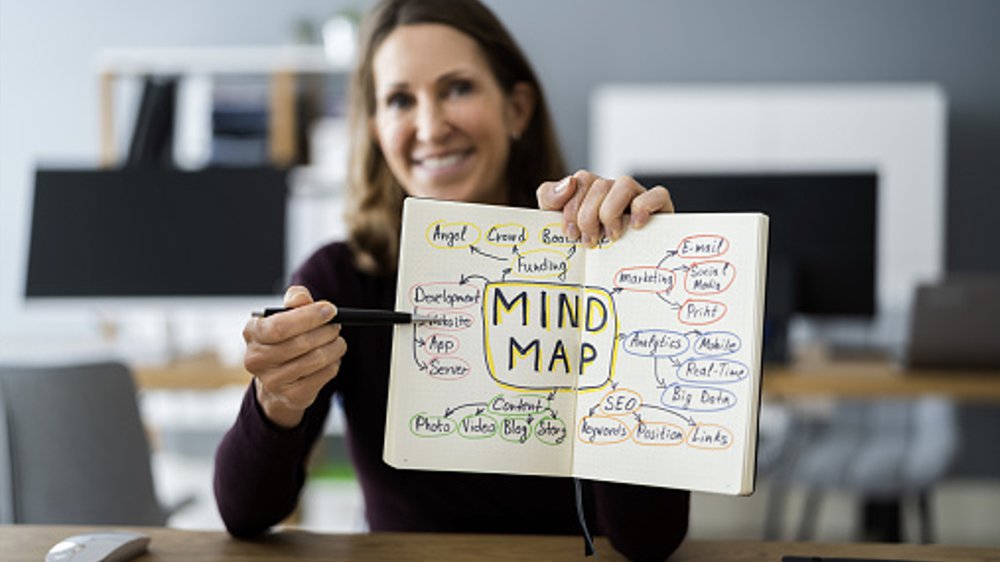 Angel Crowd
Funding
Development
Website
App
Server
MIND
MAP
Content
Photo Video Blog Story
E-mail
Marketing
Social
Media
Print
Analytics
Mobile
Real-Time
Big Data
SEO
Keywords Position Links